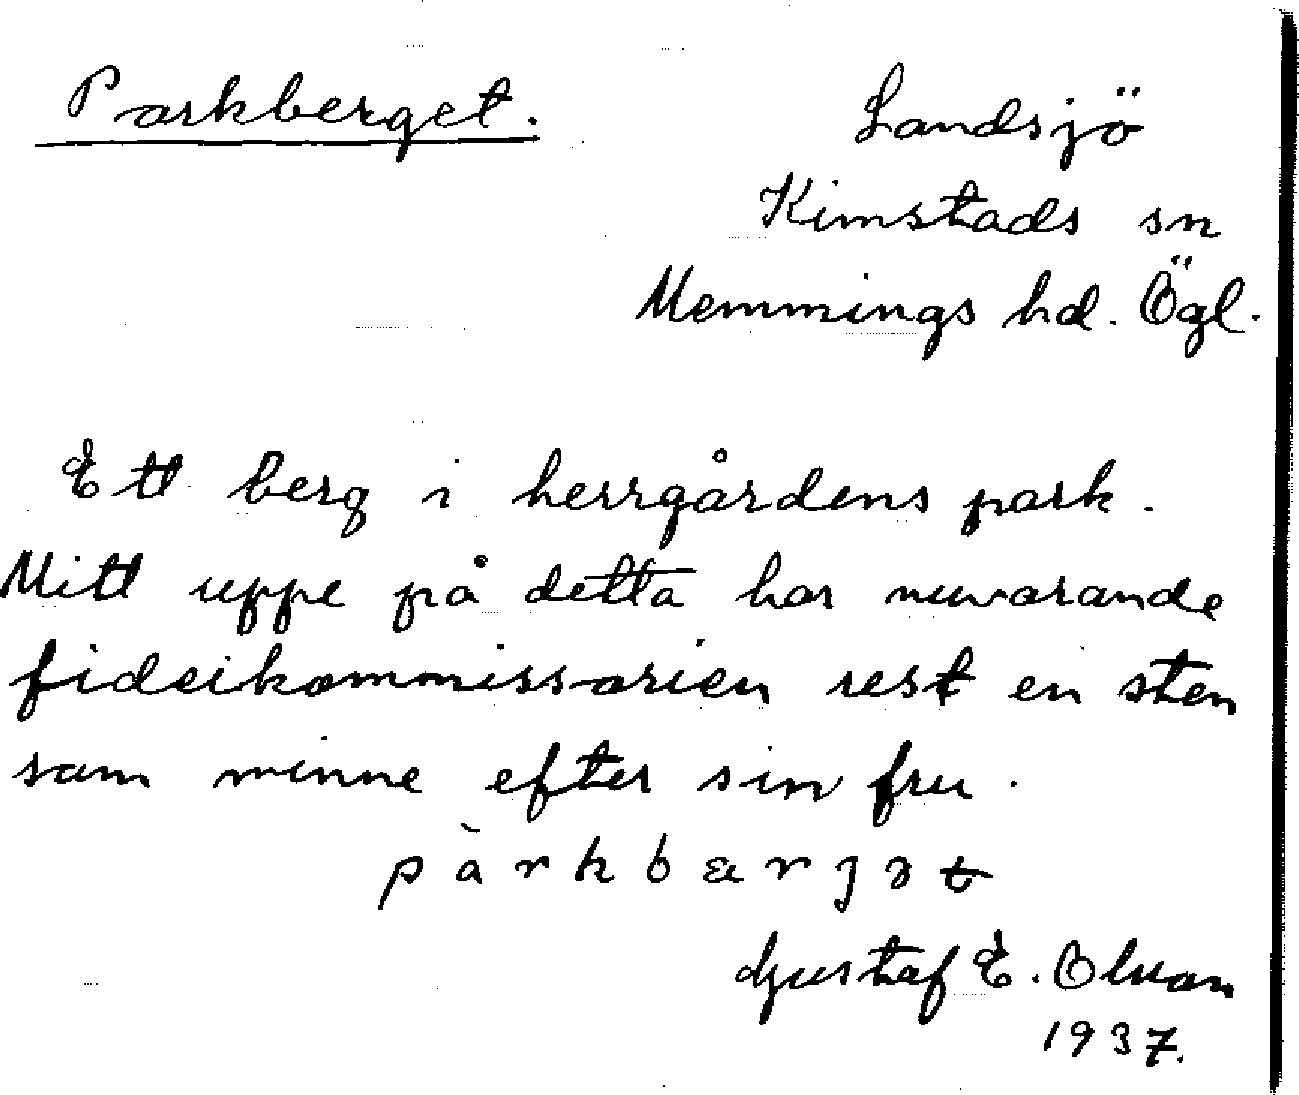 Parkberget.
Landsjö
Kimstads sn
Memmings hd. Ögl.
Ett berg i herrgårdens park.
Mitt uppe på detta har nuvarande
fideikommissarien rest en sten
som minne efter sin fru.
pàrkbærjət
Gustaf E. Olson
1937.